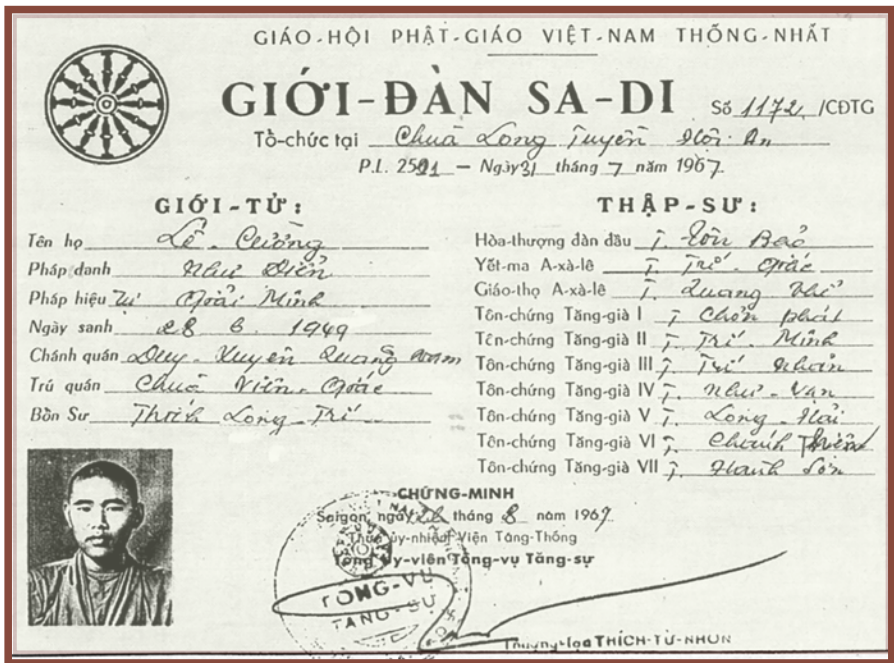 GIÁO-HỘI PHẬT-GIÁO VIỆT-NAM THỐNG-NHẤT
GIỚI-ĐÀN SA-DI Số 1172 /CĐTG
Tổ-chức tại Chuà Long Tuyền Hội An
P.L. 2511 – Ngày 31 tháng 7 năm 1967
GIỚI-TỬ:
Tên họ Lê Cường
Pháp danh Như Điển
Pháp hiệu Tự Giải Minh
Ngày sanh 28 6 1949
Chánh quán Duy-Xuyên Quảng Nam
Trú quán Chuà Viên-Giác
Bổn Sư Thích Long-Trí
THẬP-SƯ:
Hòa-thượng đàn đầu T. Tôn Bảo
Yết-ma A-xà-lê T. Trí-Giác
Giáo-thọ A-xà-lê T. Quang Thể
Tôn-chứng Tăng-già I T. Chơn Phát
Tôn-chứng Tăng-già II T. Trí-Minh
Tôn-chứng Tăng-già III T. Trí Nhãn
Tôn-chứng Tăng-già IV T. Như-Vạn
Tôn-chứng Tăng-già V T. Long-Hải
Tôn-chứng Tăng-già VI T. Chánh
Tôn-chứng Tăng-già VII T. Hạnh Sơn
CHỨNG-MINH
Saigon, ngày 22 tháng 8 năm 1967
Thừa ủy-nhiệm Viện Tăng-Thống
Tổng Ủy-viên Tổng-vụ Tăng-sự
TỔNG-VỤ
TĂNG-SỰ
Thượng-tọa THÍCH-TỪ-NHƠN